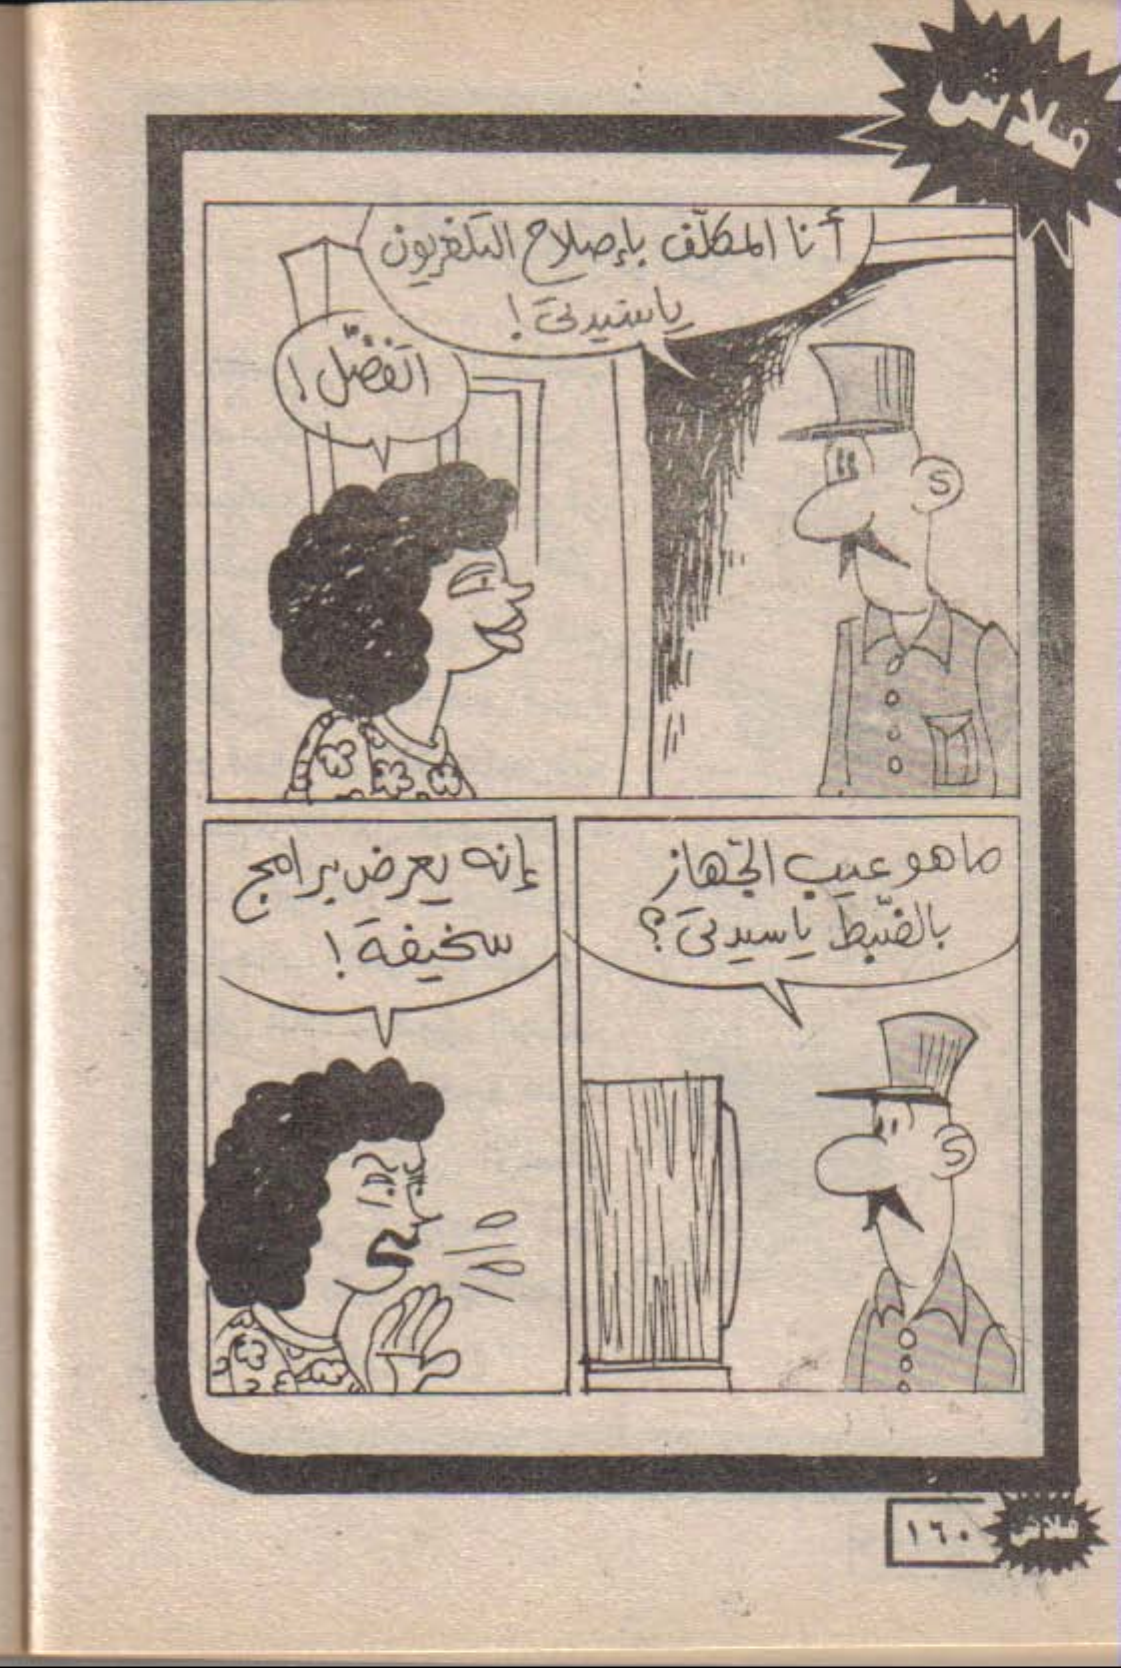 فلاش
أنا المكلّف بإصلاح التلفزيون
ياسيدتى!
اتفضّل!
ما هو عيب الجهاز
بالضّبط ياسيدتى؟
إنه يعرض برامج
سخيفة!
١٦٠
فلاش